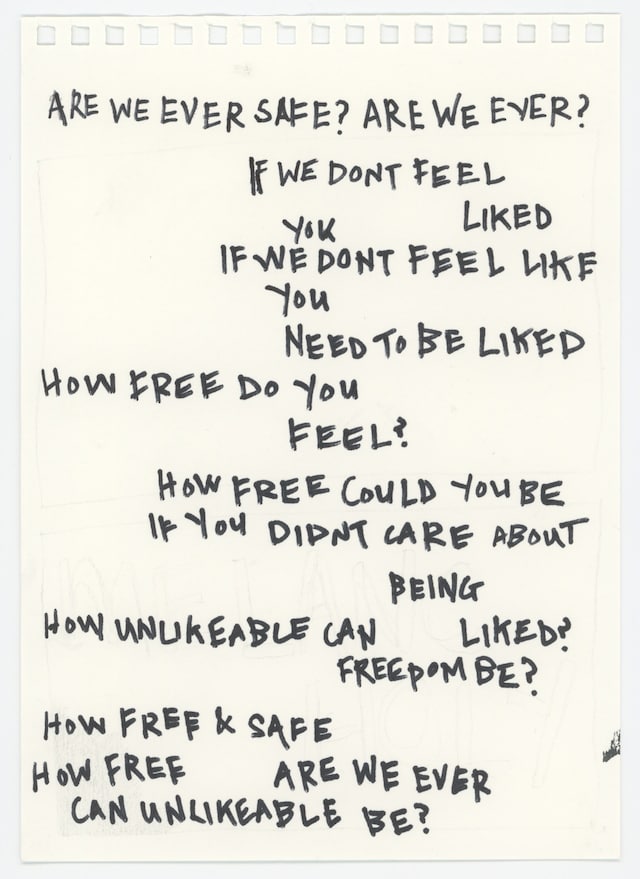 ARE WE EVER SAFE? ARE WE EVER?
IF WE DONT FEEL
LIKED
YOU
IF WE DONT FEEL LIKE
YOU
NEED TO BE LIKED
HOW FREE DO YOU
FEEL?
HOW FREE COULD YOU BE
IF YOU DIDNT CARE ABOUT
BEING
HOW UNLIKEABLE CAN LIKED?
FREEDOM BE?
HOW FREE & SAFE
HOW FREE ARE WE EVER
CAN UNLIKEABLE BE?